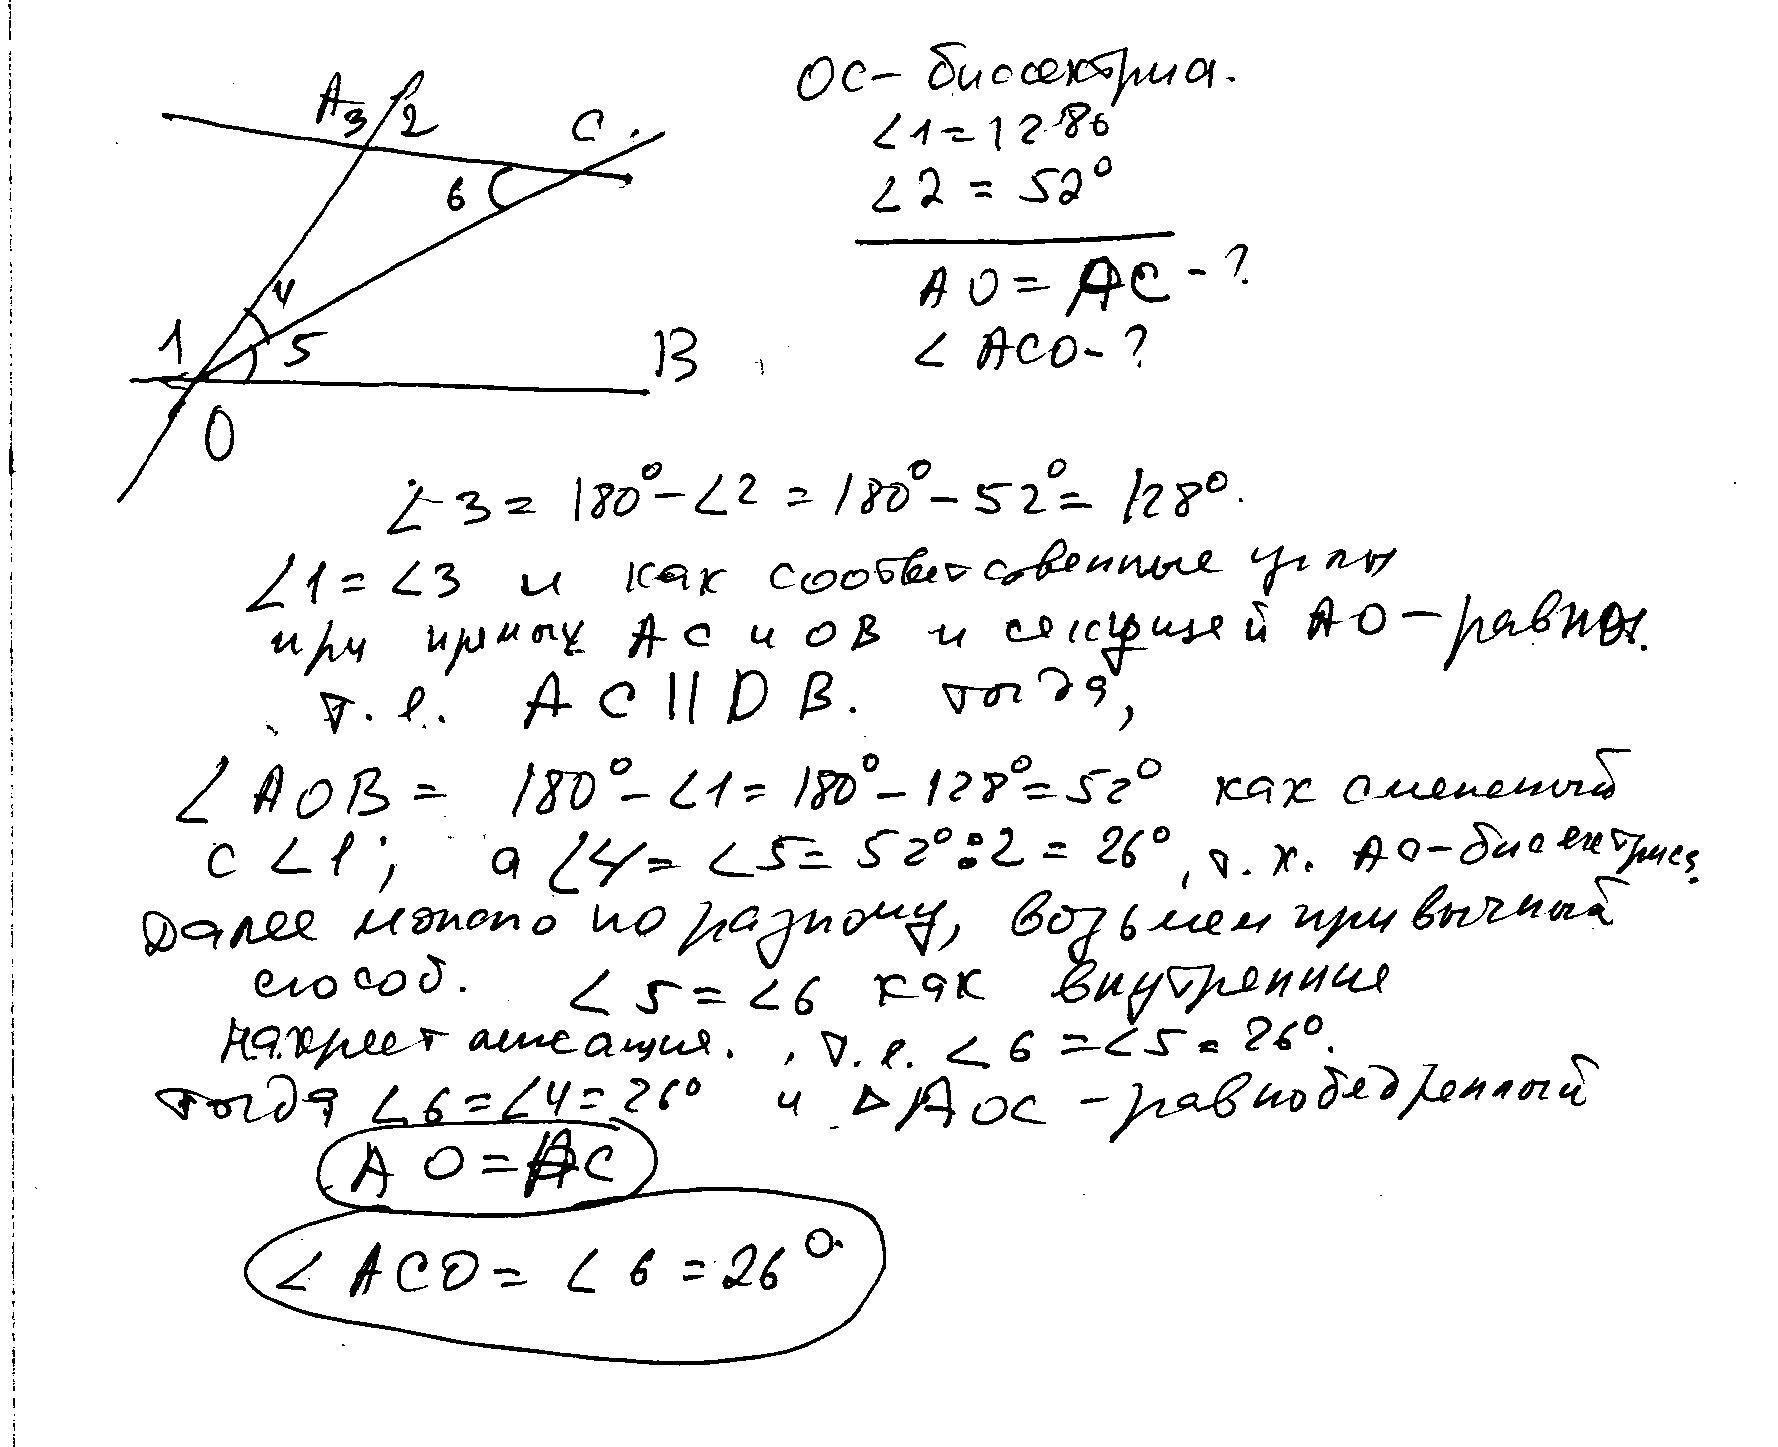 A 3 2 C
6
4
1 5 B
O
OC - биссектриса.
∠1 = 128°
∠2 = 52°
AO = AC - ?
∠ ACO - ?
∠3 = 180° - ∠2 = 180° - 52° = 128°.
∠1 = ∠3 и как соответственные углы
при прямых AC и OB и секущей AO - равны.
т.е. AC || OB. тогда,
∠ AOB = 180° - ∠1 = 180° - 128° = 52° как смежный
с ∠1; а ∠4 = ∠5 = 52° : 2 = 26°, т.к. AO - биссектриса.
Далее можно по разному, возьмем привычный
способ. ∠5 = ∠6 как внутренние
накрест лежащие., т.е. ∠6 = ∠5 = 26°.
тогда ∠6 = ∠4 = 26° и △AOC - равнобедренный
AO = AC
∠ ACO = ∠6 = 26°